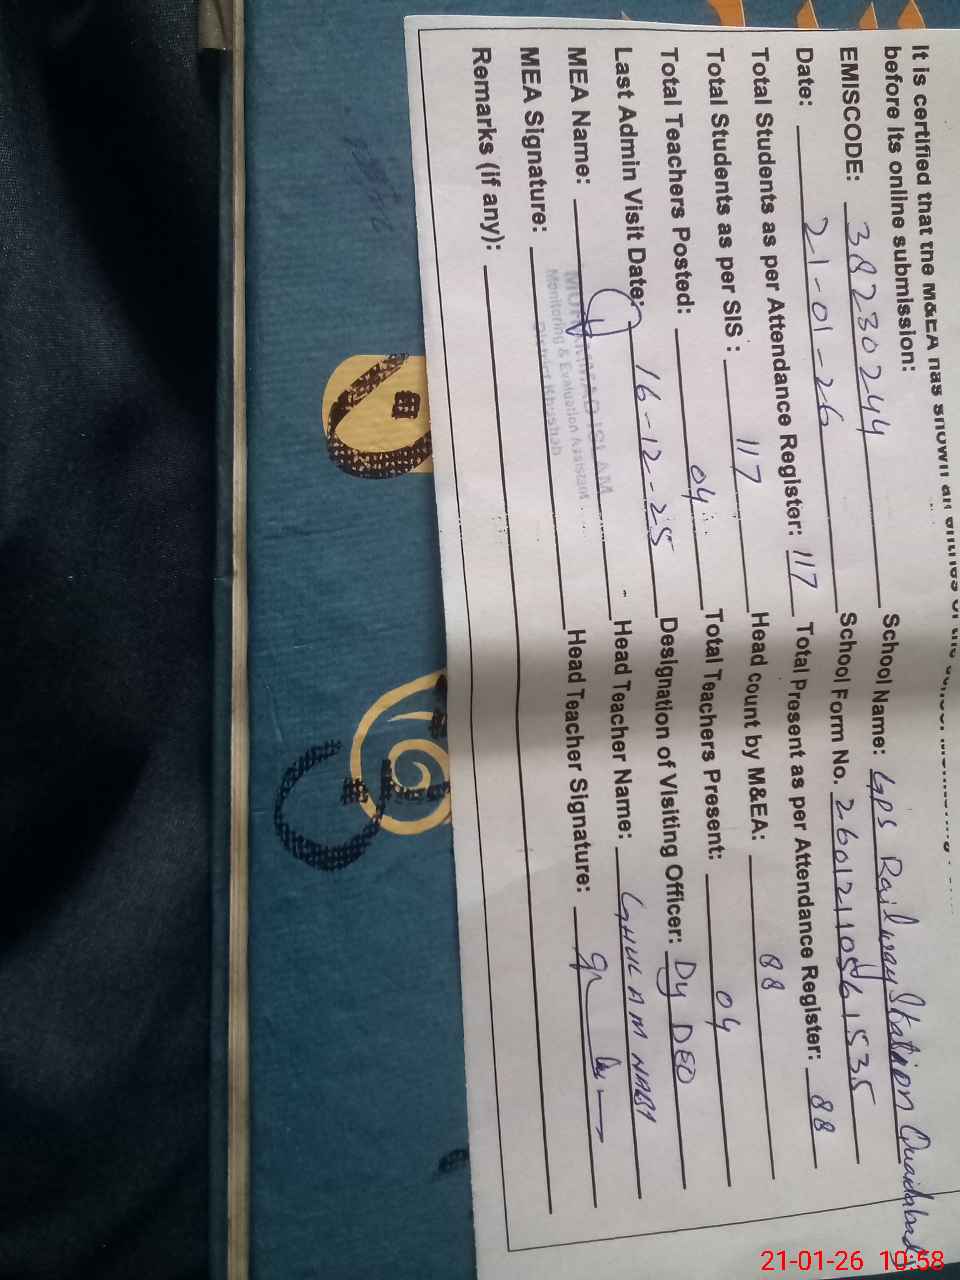 It is certified that the M&EA has shown all entries of the School Monitoring
before its online submission:
EMISCODE: 38230244 School Name: GPS Railway Station Quaidabad
Date: 21-01-26 School Form No. 26012110561535
Total Students as per Attendance Register: 117 Total Present as per Attendance Register: 88
Total Students as per SIS : 117 Head count by M&EA: 88
Total Teachers Posted: 04 Total Teachers Present: 04
Last Admin Visit Date: 16-12-25 Designation of Visiting Officer: Dy DEO
MEA Name: Head Teacher Name: GHULAM NABI
MEA Signature: Head Teacher Signature:
Remarks (if any):
ISLAM
Monitoring & Evaluation Assistant
District Khushab
21-01-26 10:58